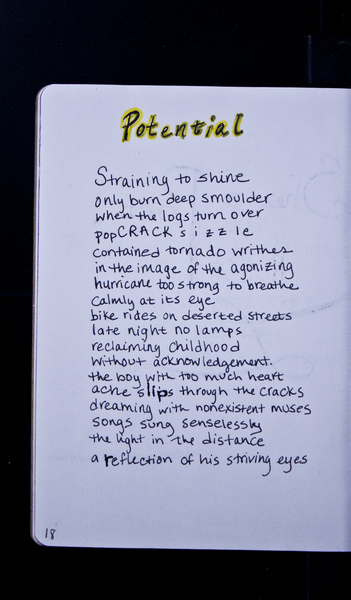 Potential
Straining to shine
only burn deep smoulder
when the logs turn over
popCRACK s i z z le
contained tornado writhes
in the image of the agonizing
hurricane too strong to breathe
calmly at its eye
bike rides on deserted streets
late night no lamps
reclaiming childhood
without acknowledgement.
the boy with too much heart
ache slips through the cracks
dreaming with nonexistent muses
songs sung senselessly
the light in the distance
a reflection of his striving eyes
18